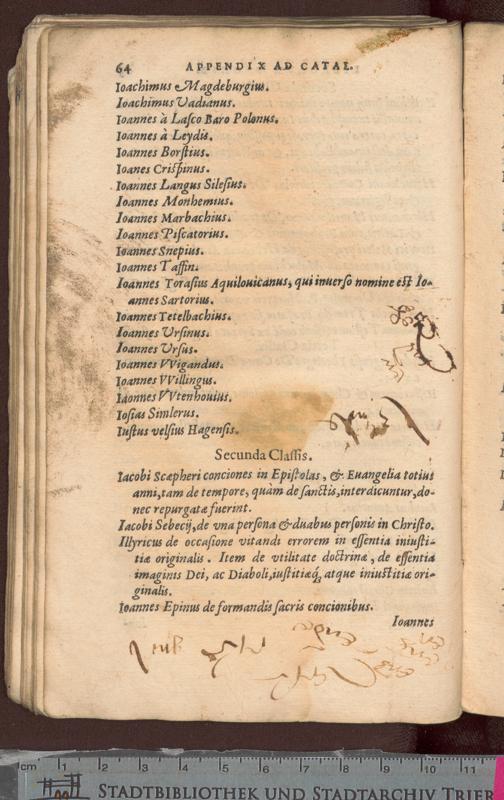 64 APPENDIX AD CATAL.
Ioachimus Magdeburgius.
Ioachimus Vadianus.
Ioannes à Lasco Baro Polonus.
Ioannes à Leydis.
Ioannes Borstius.
Ioanes Crispinus.
Ioannes Langus Silesius.
Ioannes Monhemius.
Ioannes Marbachius.
Ioannes Piscatorius.
Ioannes Snepius.
Ioannes Taffin.
Ioannes Torasius Aquilouicanus, qui inuerso nomine est Io-
annes Sartorius.
Ioannes Tetelbachius.
Ioannes Vrsinus.
Ioannes Vrsus.
Ioannes VVigandus.
Ioannes VVillingus.
Iaonnes VVtenhouius.
Iosias Simlerus.
Iustus velsius Hagensis.
Secunda Classis.
Iacobi Scæpheri conciones in Epistolas, & Euangelia totius
anni, tam de tempore, quàm de sanctis, interdicuntur, do-
nec repurgatæ fuerint.
Iacobi Sebecij, de vna persona & duabus personis in Christo.
Illyricus de occasione vitandi errorem in essentia iniusti-
tiæ originalis. Item de vtilitate doctrinæ, de essentia
imaginis Dei, ac Diaboli, iustitiæq́; atque iniustitiæ ori-
ginalis.
Ioannes Epinus de formandis sacris concionibus.
Ioannes
cm 1 2 3 4 5 6 7 8 9 10 11
STADTBIBLIOTHEK UND STADTARCHIV TRIER